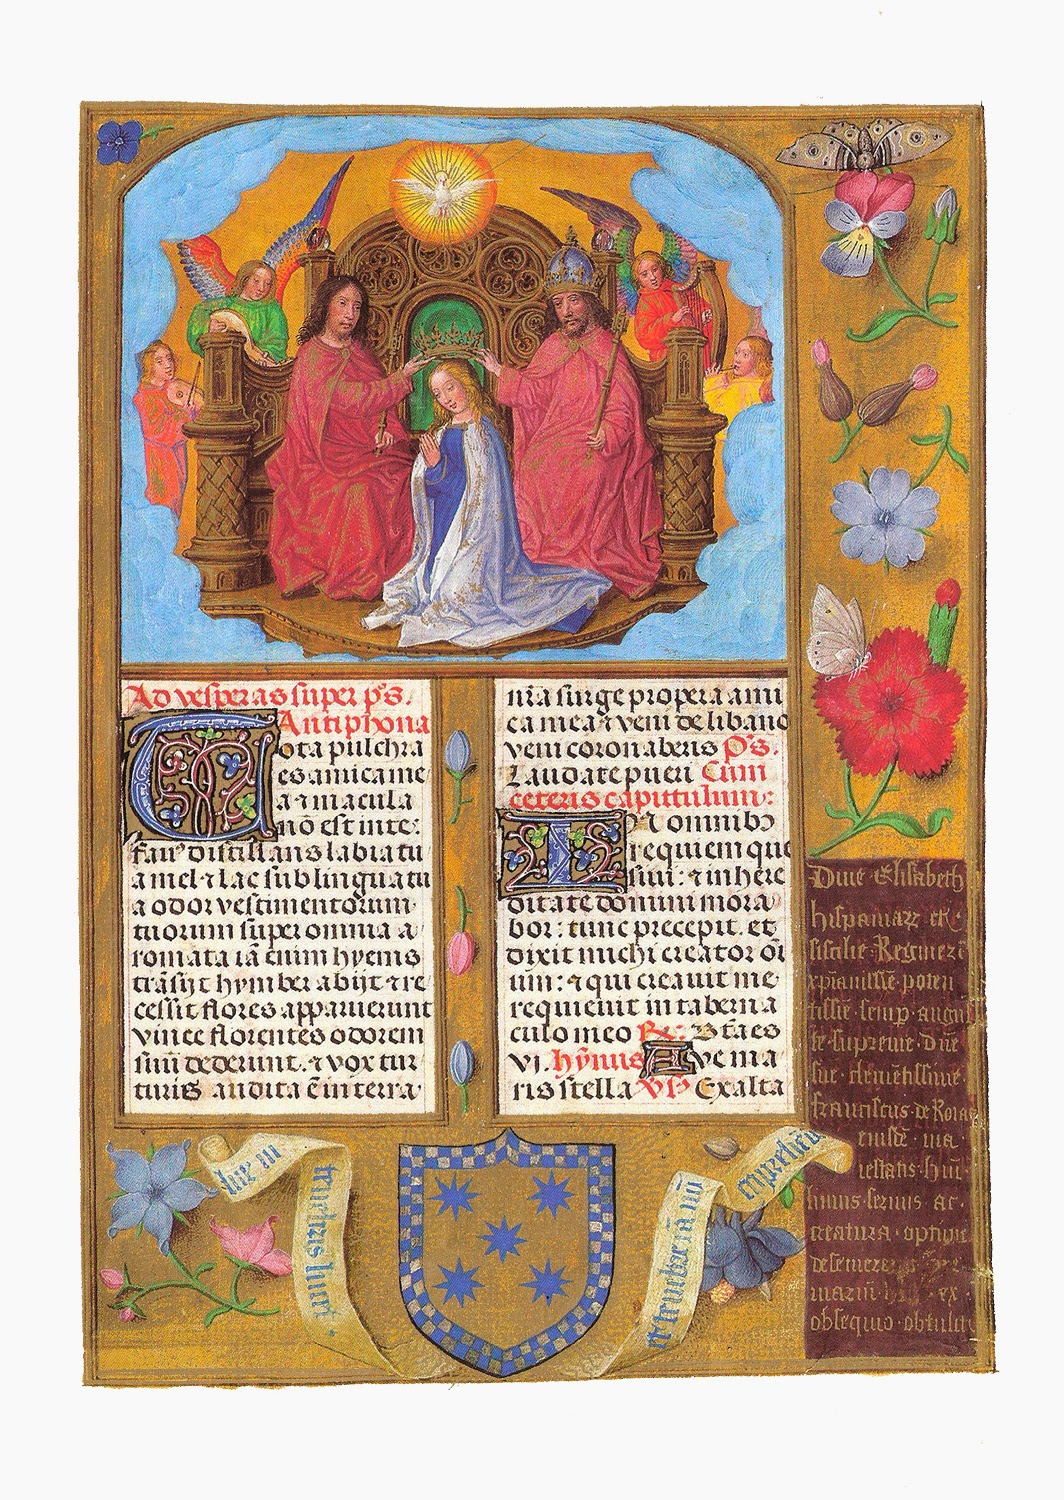 Ad vesperas super ps.
Antiphona
Tota pulchra
es amica me
a ⁊ macula
nō est in te:
fau⁹ distillans labia tu
a mel ⁊ lac sub lingua tu
a odor vestimentorum
tuorum super omnia a
romata iā enim hyems
trāsijt hymber abijt ⁊ re
cessit flores apparuerunt
vinee florentes odorem
suū dederunt. ⁊ vox tur
turis audita ē in terra
nr̄a surge propera ami
ca mea ⁊ veni de libano
veni coronaberis Ps.
Laudate pueri Cum
ceteris capittulum:
In omnibꝫ
requiem que
siui: ⁊ in here
ditate domini mora
bor: tunc precepit. et
dixit michi creator oī
um: ⁊ qui creauit me
requieuit in taberna
culo meo R. Btā es
vi. hȳnus Ave ma
ris stella Vs Exalta
Diue Elisabeth
hispaniarꝫ et
sisilie Regine ꝛc
xpianissīe poten
tissīe semꝑ augu
ste supreme dn̄e
sue clemētissime
franciscus de Roias
eiusdē ma
iestatis hūi
limus seruus ac
creatura optime
de se mere
mariū ex
obsequio obtulit
lux in
tenebris lucet
et tenebre eā nō
cōprehēn